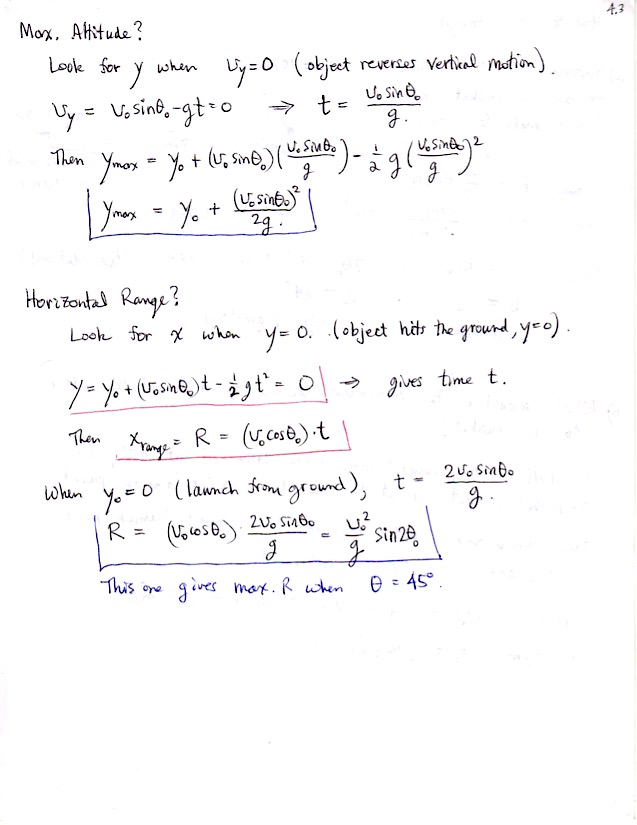 4.3
Max. Altitude?
Look for y when v_y = 0 (object reverses vertical motion).
v_y = v₀ sinθ₀ - gt = 0 ⇒ t = v₀ sinθ₀ / g.
Then y_max = y₀ + (v₀ sinθ₀)(v₀ sinθ₀ / g) - ½ g (v₀ sinθ₀ / g)²
y_max = y₀ + (v₀ sinθ₀)² / 2g.
Horizontal Range?
Look for x when y = 0. (object hits the ground, y=0).
y = y₀ + (v₀ sinθ₀)t - ½ gt² = 0 → gives time t.
Then x_range = R = (v₀ cosθ₀)·t
When y₀ = 0 (launch from ground), t = 2v₀ sinθ₀ / g.
R = (v₀ cosθ₀)· 2v₀ sinθ₀ / g = v₀² / g sin2θ₀
This one gives max. R when θ = 45°.